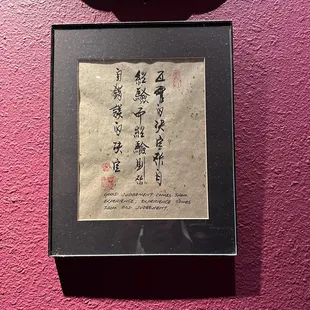 的決定自
經驗而經驗則
自錯誤的決定
GOOD JUDGEMENT COMES FROM
EXPERIENCE, EXPERIENCE COMES
FROM BAD JUDGEMENT.